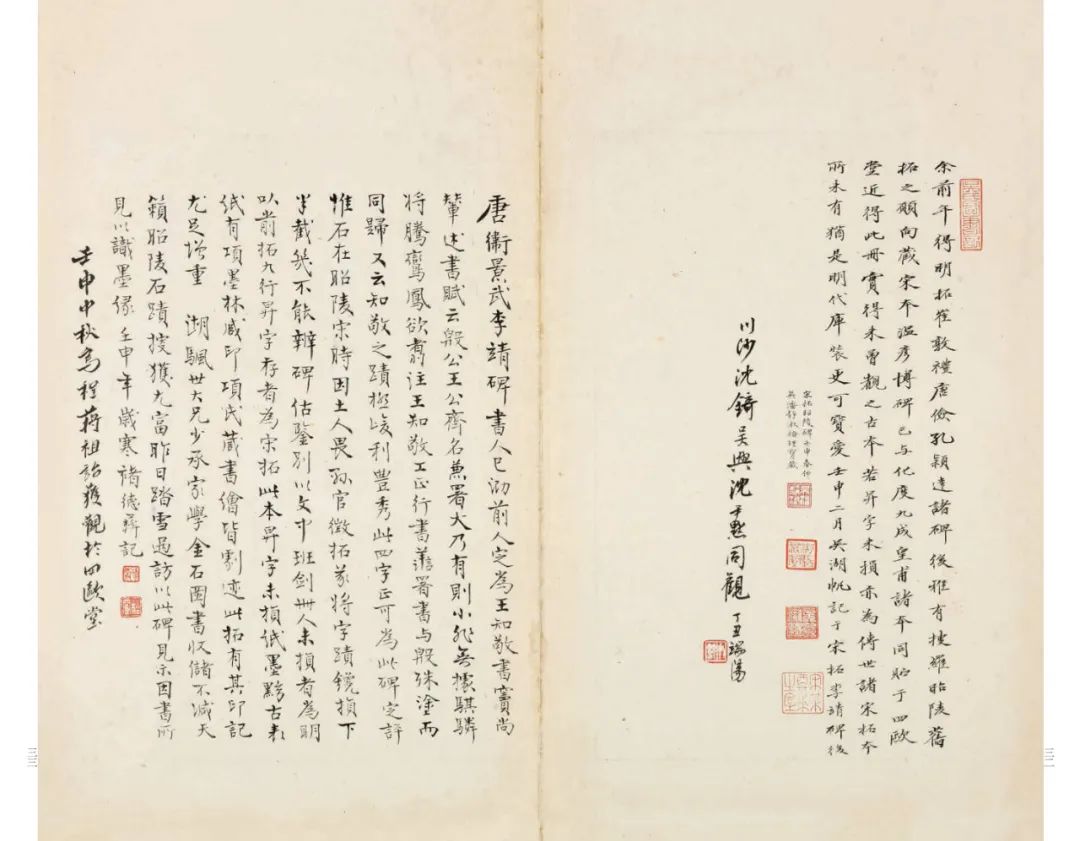 余前年得明拓崔敦禮唐儉孔穎達諸碑後雅有搜羅昭陵舊
拓之願向藏宋本溫彥博碑已与化度九成皇甫諸本同貯于四歐
堂近得此冊實得未曾觀之古本若昇字未損亦為傳世諸宋拓本
所未有猶是明代庫裝更可寶愛壬申二月吳湖帆記于宋拓李靖碑後
宋拓昭陵碑壬申春仲
吳潘靜淑梅瑾寶藏
川沙沈錡吳興沈尹默同觀 丁丑端陽
唐衛景武李靖碑書人已泐前人定為王知敬書竇尚
輦述書賦云殷公王公齊名兼署大乃有則小非無據騏驎
將騰鸞鳳欲翥注王知敬工正行書善署書与殷殊塗而
同歸又云知敬之蹟極峻利豐秀此四字正可為此碑定評
惟石在昭陵宋時因土人畏孫官徵拓彖將字蹟鐃損下
半截幾不能辨碑估鑒別以文中班劍卌人未損者為明
以前拓九行昇字存者為宋拓此本昇字未損紙墨黝古表
紙有項墨林咸印項氏藏書繪皆劇迹此拓有其印記
尤足增重 湖颿世大兄少承家學金石圖書收儲不減天
籟昭陵石蹟搜獲尤富昨日踏雪過訪以此碑見示因書所
見以識墨緣壬申年歲寒褚德彝記
壬申中秋烏程蔣祖詒獲觀於四歐堂
三三
三二